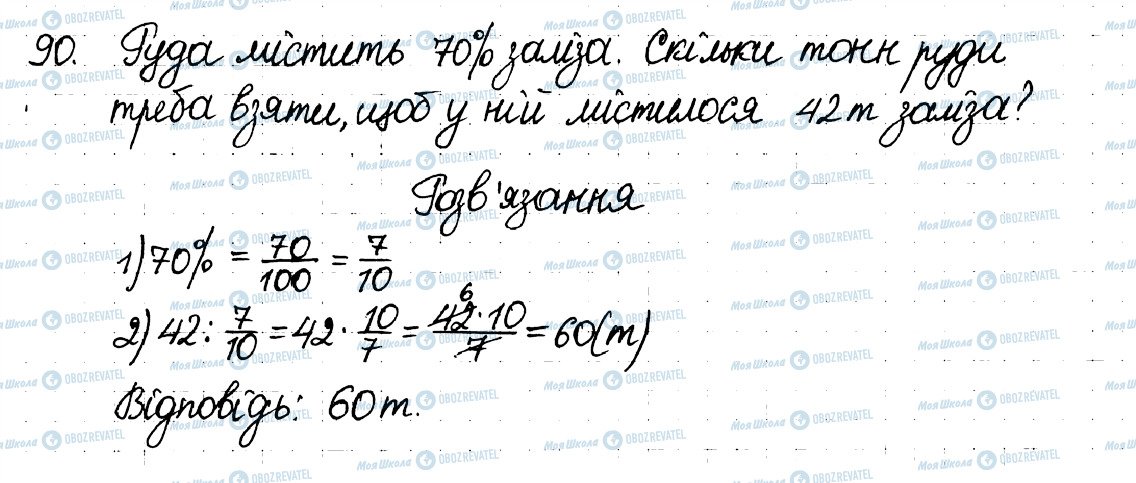 90. Руда містить 70% заліза. Скільки тонн руди
треба взяти, щоб у ній містилося 42 т заліза?
Розв'язання
1) 70% = 70/100 = 7/10
2) 42 : 7/10 = 42 · 10/7 = 42 · 10/7 = 60(т)
6
Відповідь: 60 т.
Моя Школа OBOZREVATEL